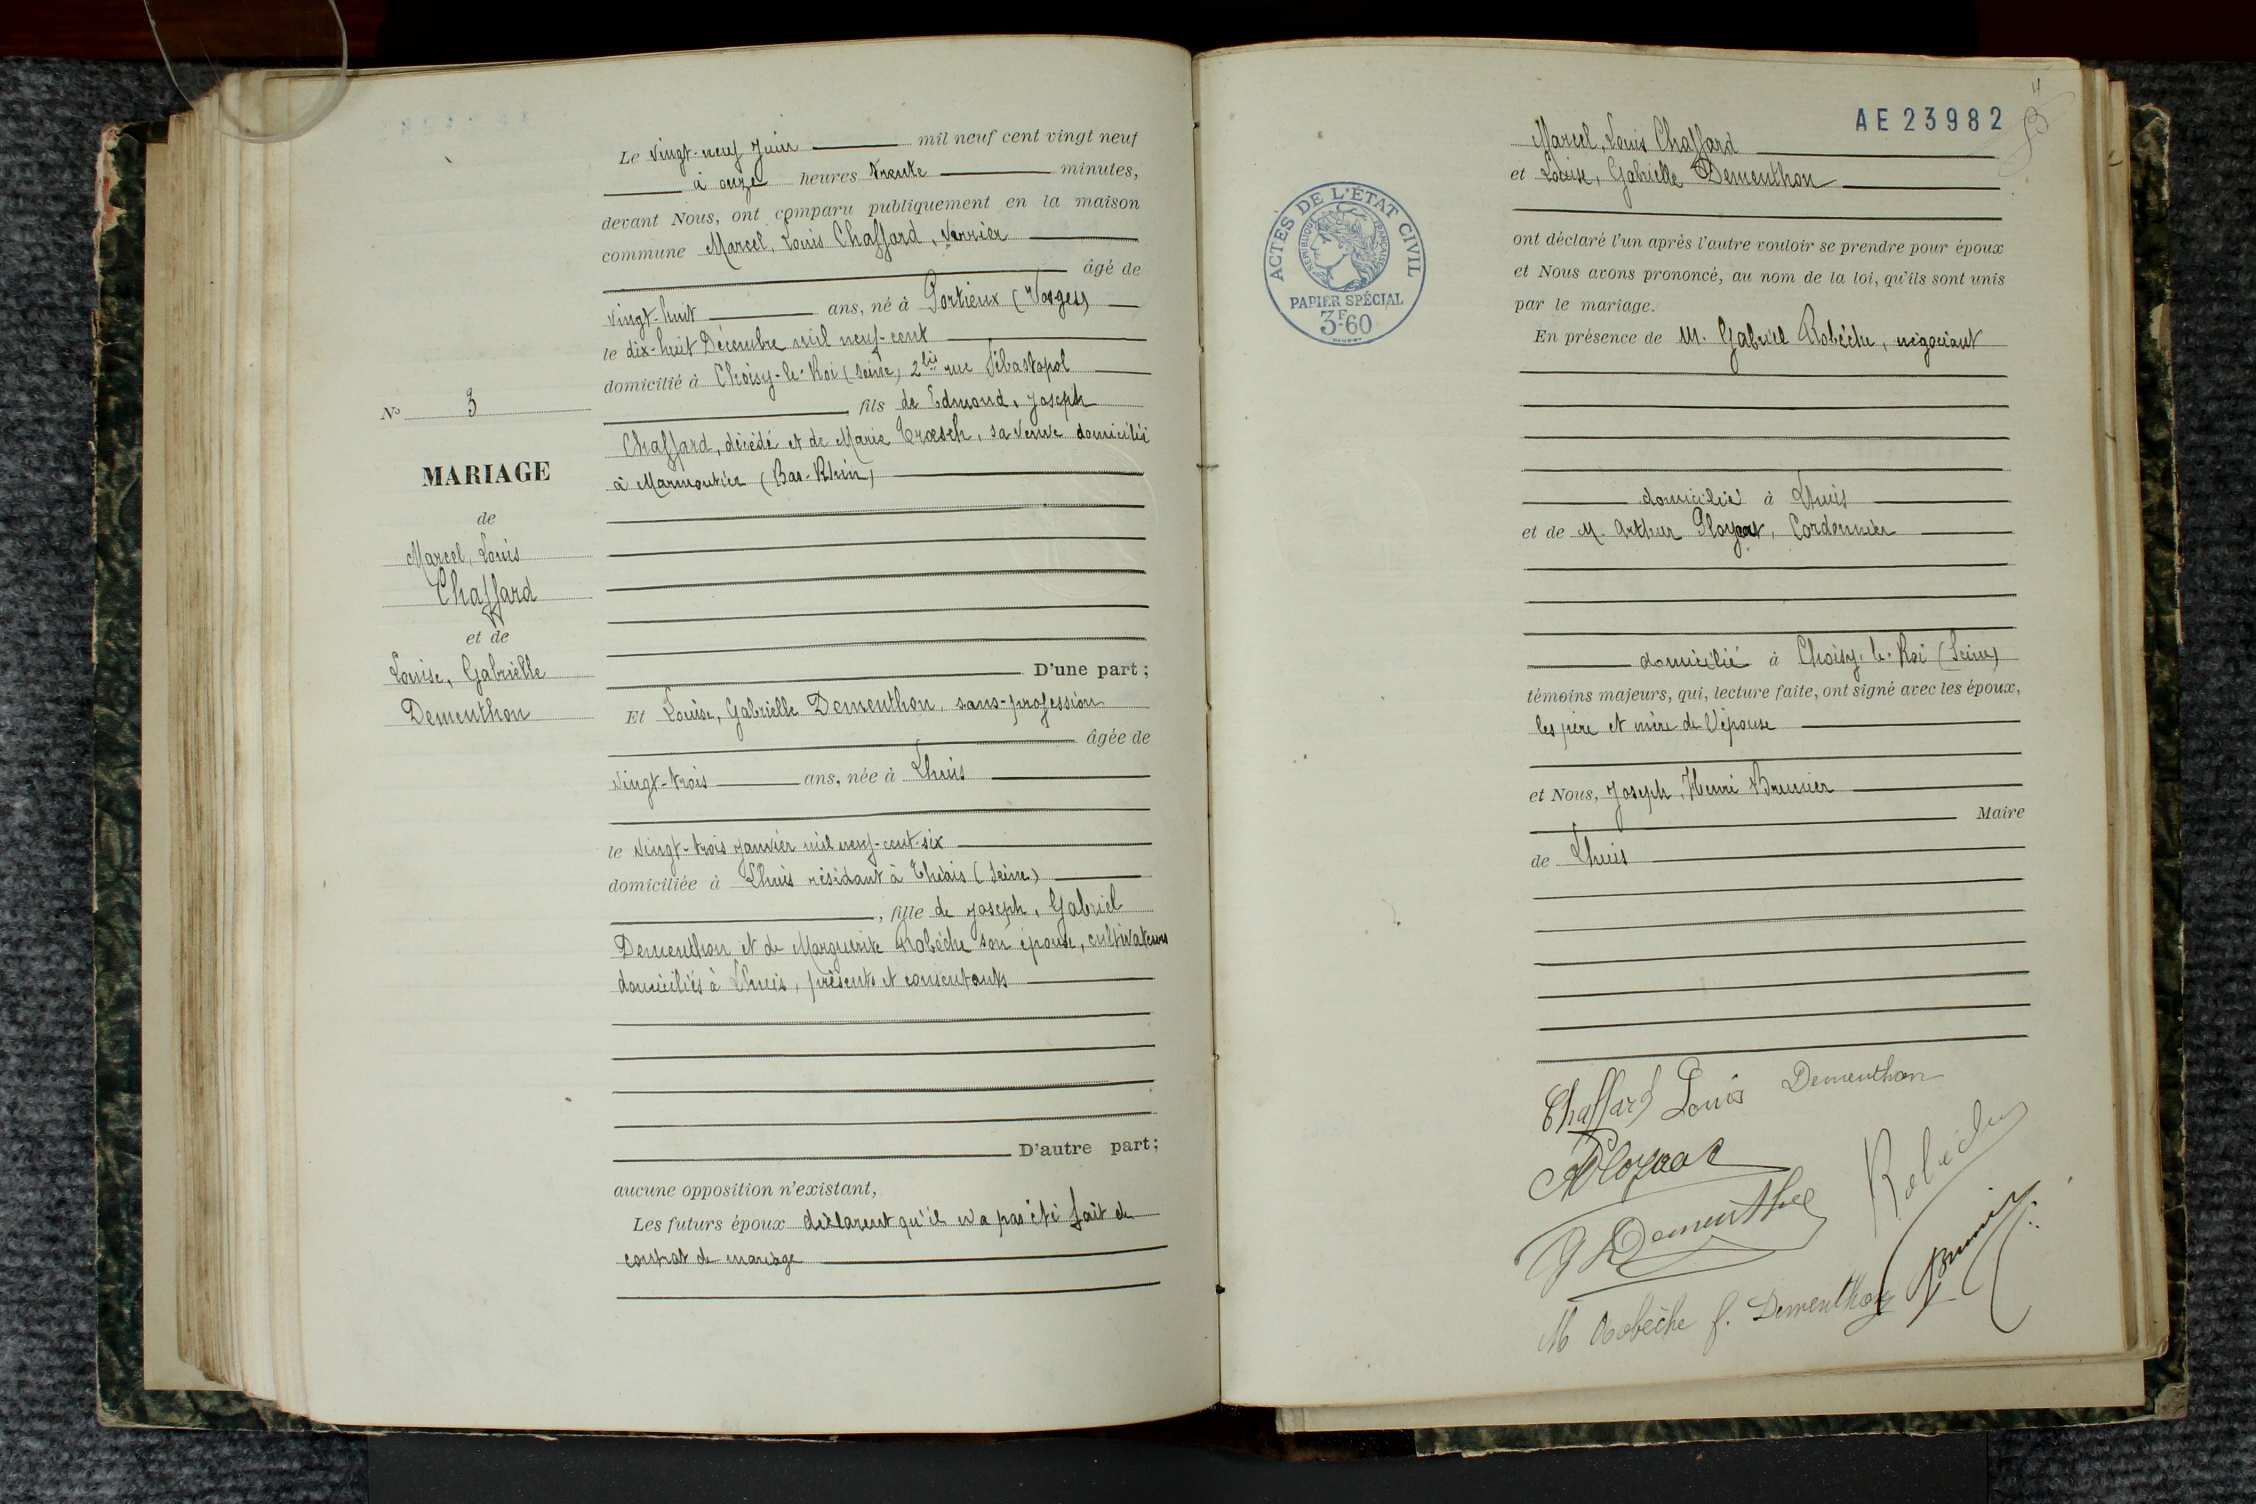 Le vingt-neuf Juin mil neuf cent vingt neuf
à onze heures trente minutes,
devant Nous, ont comparu publiquement en la maison
commune Marcel, Louis Chaffard, verrier
âgé de
vingt-huit ans, né à Portieux (Vosges)
le dix-huit Décembre mil neuf-cent
domicilié à Choisy-le-Roi (Seine) 2bis rue Sébastopol
fils de Edmond, Joseph
Chaffard, décédé et de Marie Trœsch, sa veuve domiciliée
à Marmoutier (Bas-Rhin)
D'une part;
Et Louise, Gabrielle Dementhon, sans-profession
âgée de
vingt-trois ans, née à Lhuis
le vingt-trois janvier mil neuf-cent-six
domiciliée à Lhuis résidant à Thiais (Seine)
, fille de Joseph, Gabriel
Dementhon et de Marguerite Robéche son épouse, cultivateurs
domiciliés à Lhuis, présents et consentants
D'autre part;
aucune opposition n'existant,
Les futurs époux déclarent qu'il n'a pas été fait de
contrat de mariage
No 3
MARIAGE
de
Marcel, Louis
Chaffard
et de
Louise, Gabrielle
Dementhon
AE 23982
ACTES DE L'ÉTAT CIVIL
RÉPUBLIQUE FRANÇAISE
PAPIER SPÉCIAL
3F60
Marcel, Louis Chaffard
et Louise, Gabrielle Dementhon
ont déclaré l'un après l'autre vouloir se prendre pour époux
et Nous avons prononcé, au nom de la loi, qu'ils sont unis
par le mariage.
En présence de M. Gabriel Robéche, négociant
domicilié à Lhuis
et de M. Arthur, Cordonnier
domicilié à Choisy-le-Roi (Seine)
témoins majeurs, qui, lecture faite, ont signé avec les époux,
les père et mère de l'épouse
et Nous, Joseph, Henri Brunier
Maire
de Lhuis
Chaffard Louis Dementhon
Robéche
G Dementhon
Brunier
M Robèche f. Dementhon